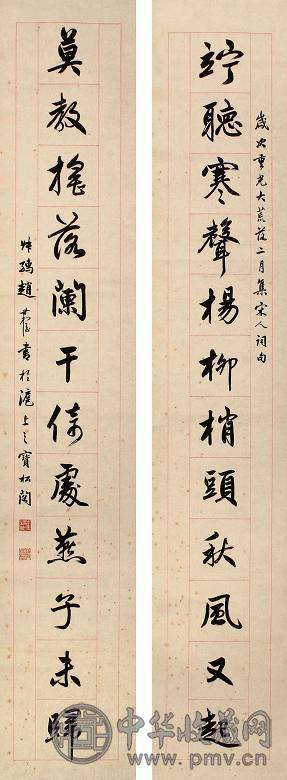 竚聽寒聲楊柳梢頭秋風又起
歲次重光大荒落二月集宋人詞句
莫教搖落闌干倚處燕子未歸
孺趙書於滬上之寶松閣
中华收藏网
www.pmv.cn